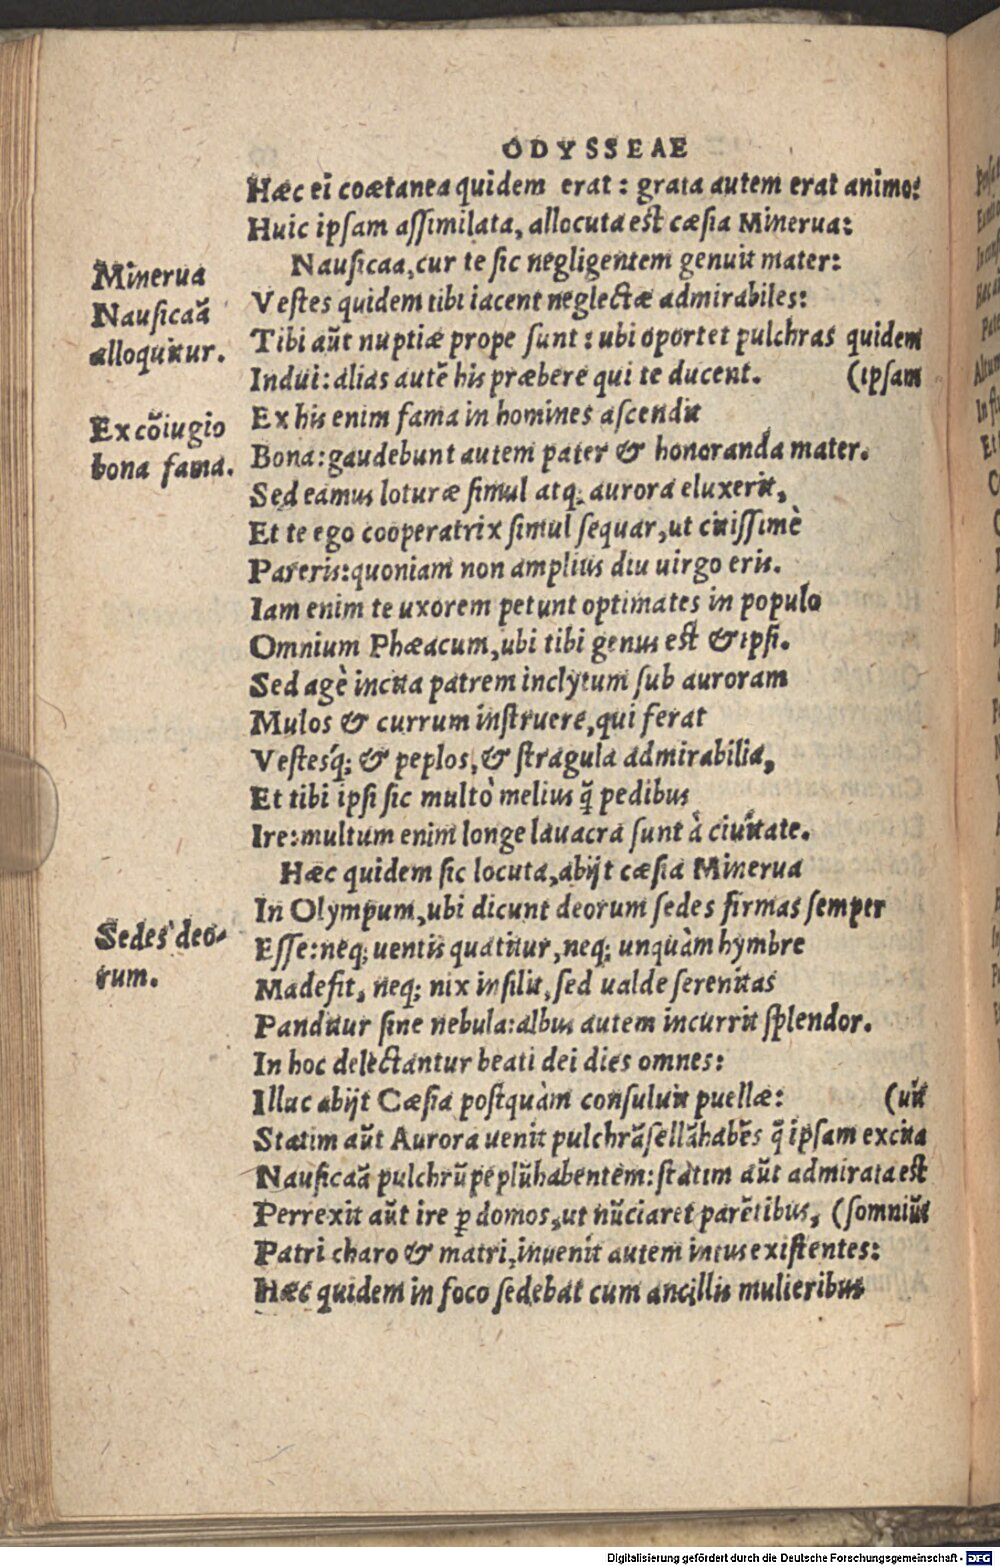 ODYSSEAE
Hæc ei coætanea quidem erat: grata autem erat animo:
Huic ipsam assimilata, allocuta est cæsia Minerua:
Nausicaa, cur te sic negligentem genuit mater:
Vestes quidem tibi iacent neglectæ admirabiles:
Tibi aũt nuptiæ prope sunt: ubi oportet pulchras quidem
Indui: alias autẽ his præbere qui te ducent. (ipsam
Ex his enim fama in homines ascendit
Bona: gaudebunt autem pater & honoranda mater.
Sed eamus loturæ simul atq; aurora eluxerit,
Et te ego cooperatrix simul sequar, ut citissimè
Pareris: quoniam non amplius diu uirgo eris.
Iam enim te uxorem petunt optimates in populo
Omnium Phæacum, ubi tibi genus est & ipsi.
Sed agè incita patrem inclytum sub auroram
Mulos & currum instruere, qui ferat
Vestesq́; & peplos, & stragula admirabilia,
Et tibi ipsi sic multò melius q̃ pedibus
Ire: multum enim longe lauacra sunt à ciuitate.
Hæc quidem sic locuta, abijt cæsia Minerua
In Olympum, ubi dicunt deorum sedes firmas semper
Esse: neq; uentis quatitur, neq; unquàm hymbre
Madefit, neq; nix insilit, sed ualde serenitas
Panditur sine nebula: albus autem incurrit splendor.
In hoc delectantur beati dei dies omnes:
Illuc abijt Cæsia postquàm consuluit puellæ: (uit
Statim aũt Aurora uenit pulchrã sellã habẽs q̃ ipsam excita
Nausicaã pulchrũ peplũ habentem: statim aũt admirata est
Perrexit aũt ire ꝑ domos, ut nũciaret parẽtibus, (somniũ
Patri charo & matri, inuenit autem intus existentes:
Hæc quidem in foco sedebat cum ancillis mulieribus
Minerua
Nausicaã
alloquitur.
Ex cõiugio
bona fama.
Sedes deo-
rum.
Digitalisierung gefördert durch die Deutsche Forschungsgemeinschaft - DFG